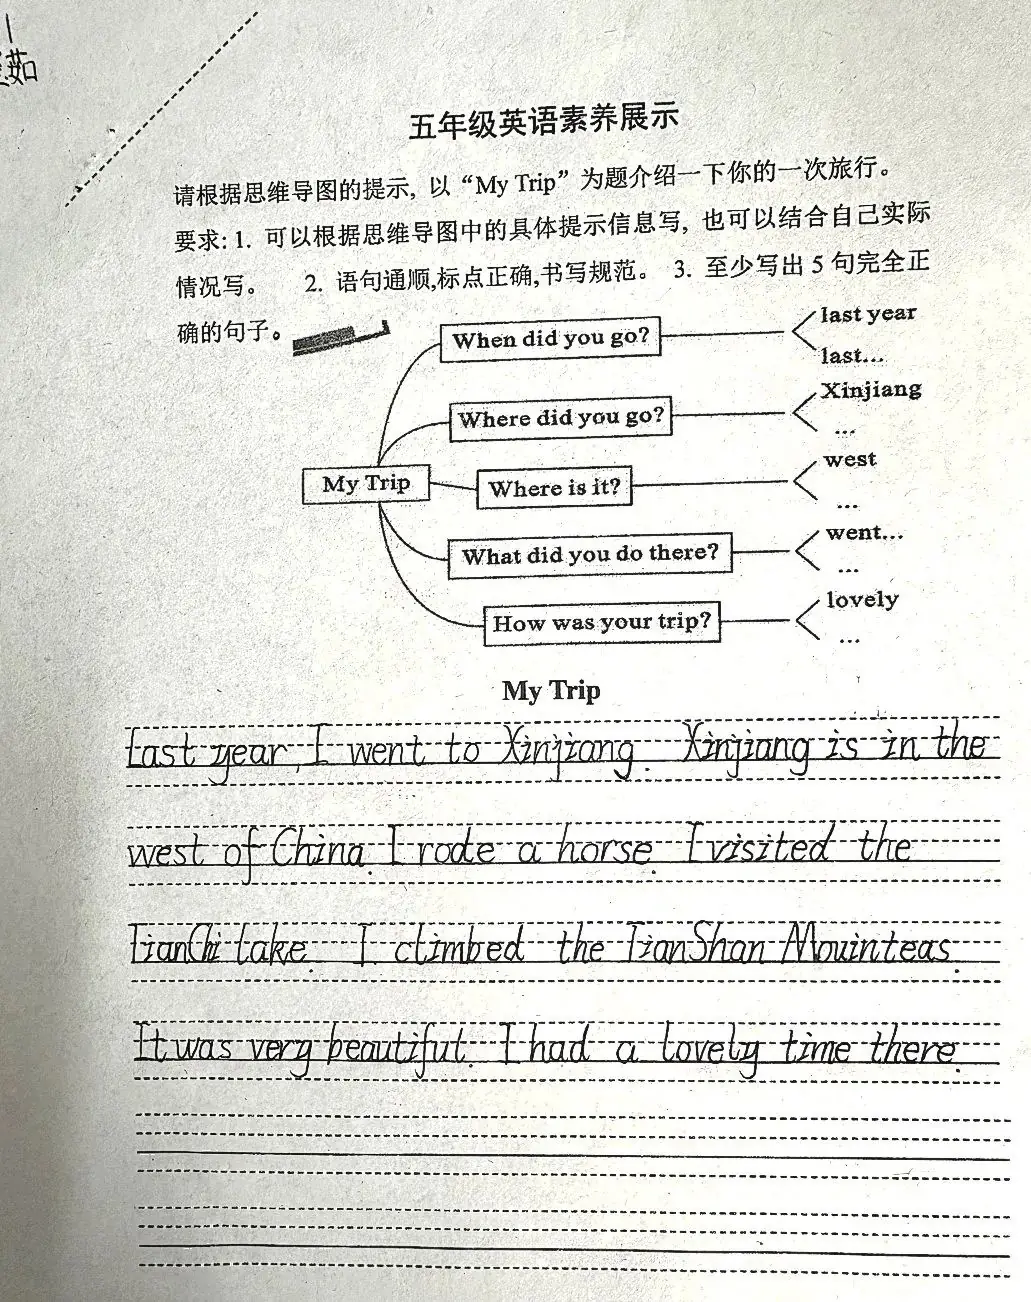 茹
五年级英语素养展示
请根据思维导图的提示, 以“My Trip”为题介绍一下你的一次旅行。
要求: 1. 可以根据思维导图中的具体提示信息写, 也可以结合自己实际
情况写。 2. 语句通顺,标点正确,书写规范。 3. 至少写出 5 句完全正
确的句子。
When did you go?
last year
last...
Where did you go?
Xinjiang
...
My Trip
Where is it?
west
...
What did you do there?
went...
...
How was your trip?
lovely
...
My Trip
Last year, I went to Xinjiang. Xinjiang is in the
west of China. I rode a horse. I visited the
TianChi Lake. I climbed the TianShan Mouinteas.
It was very beautiful. I had a lovely time there.